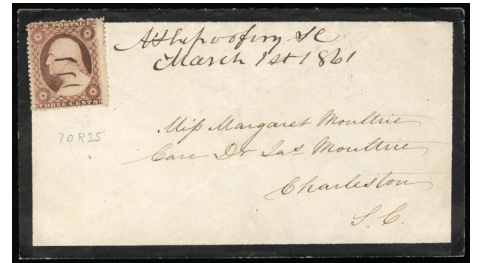 U.S. POSTAGE
THREE CENTS
Ashepoo Ferry SC
March 1st 1861
70R25
Miss Margaret Moultrie
Care Dr Jas Moultrie
Charleston
S.C.